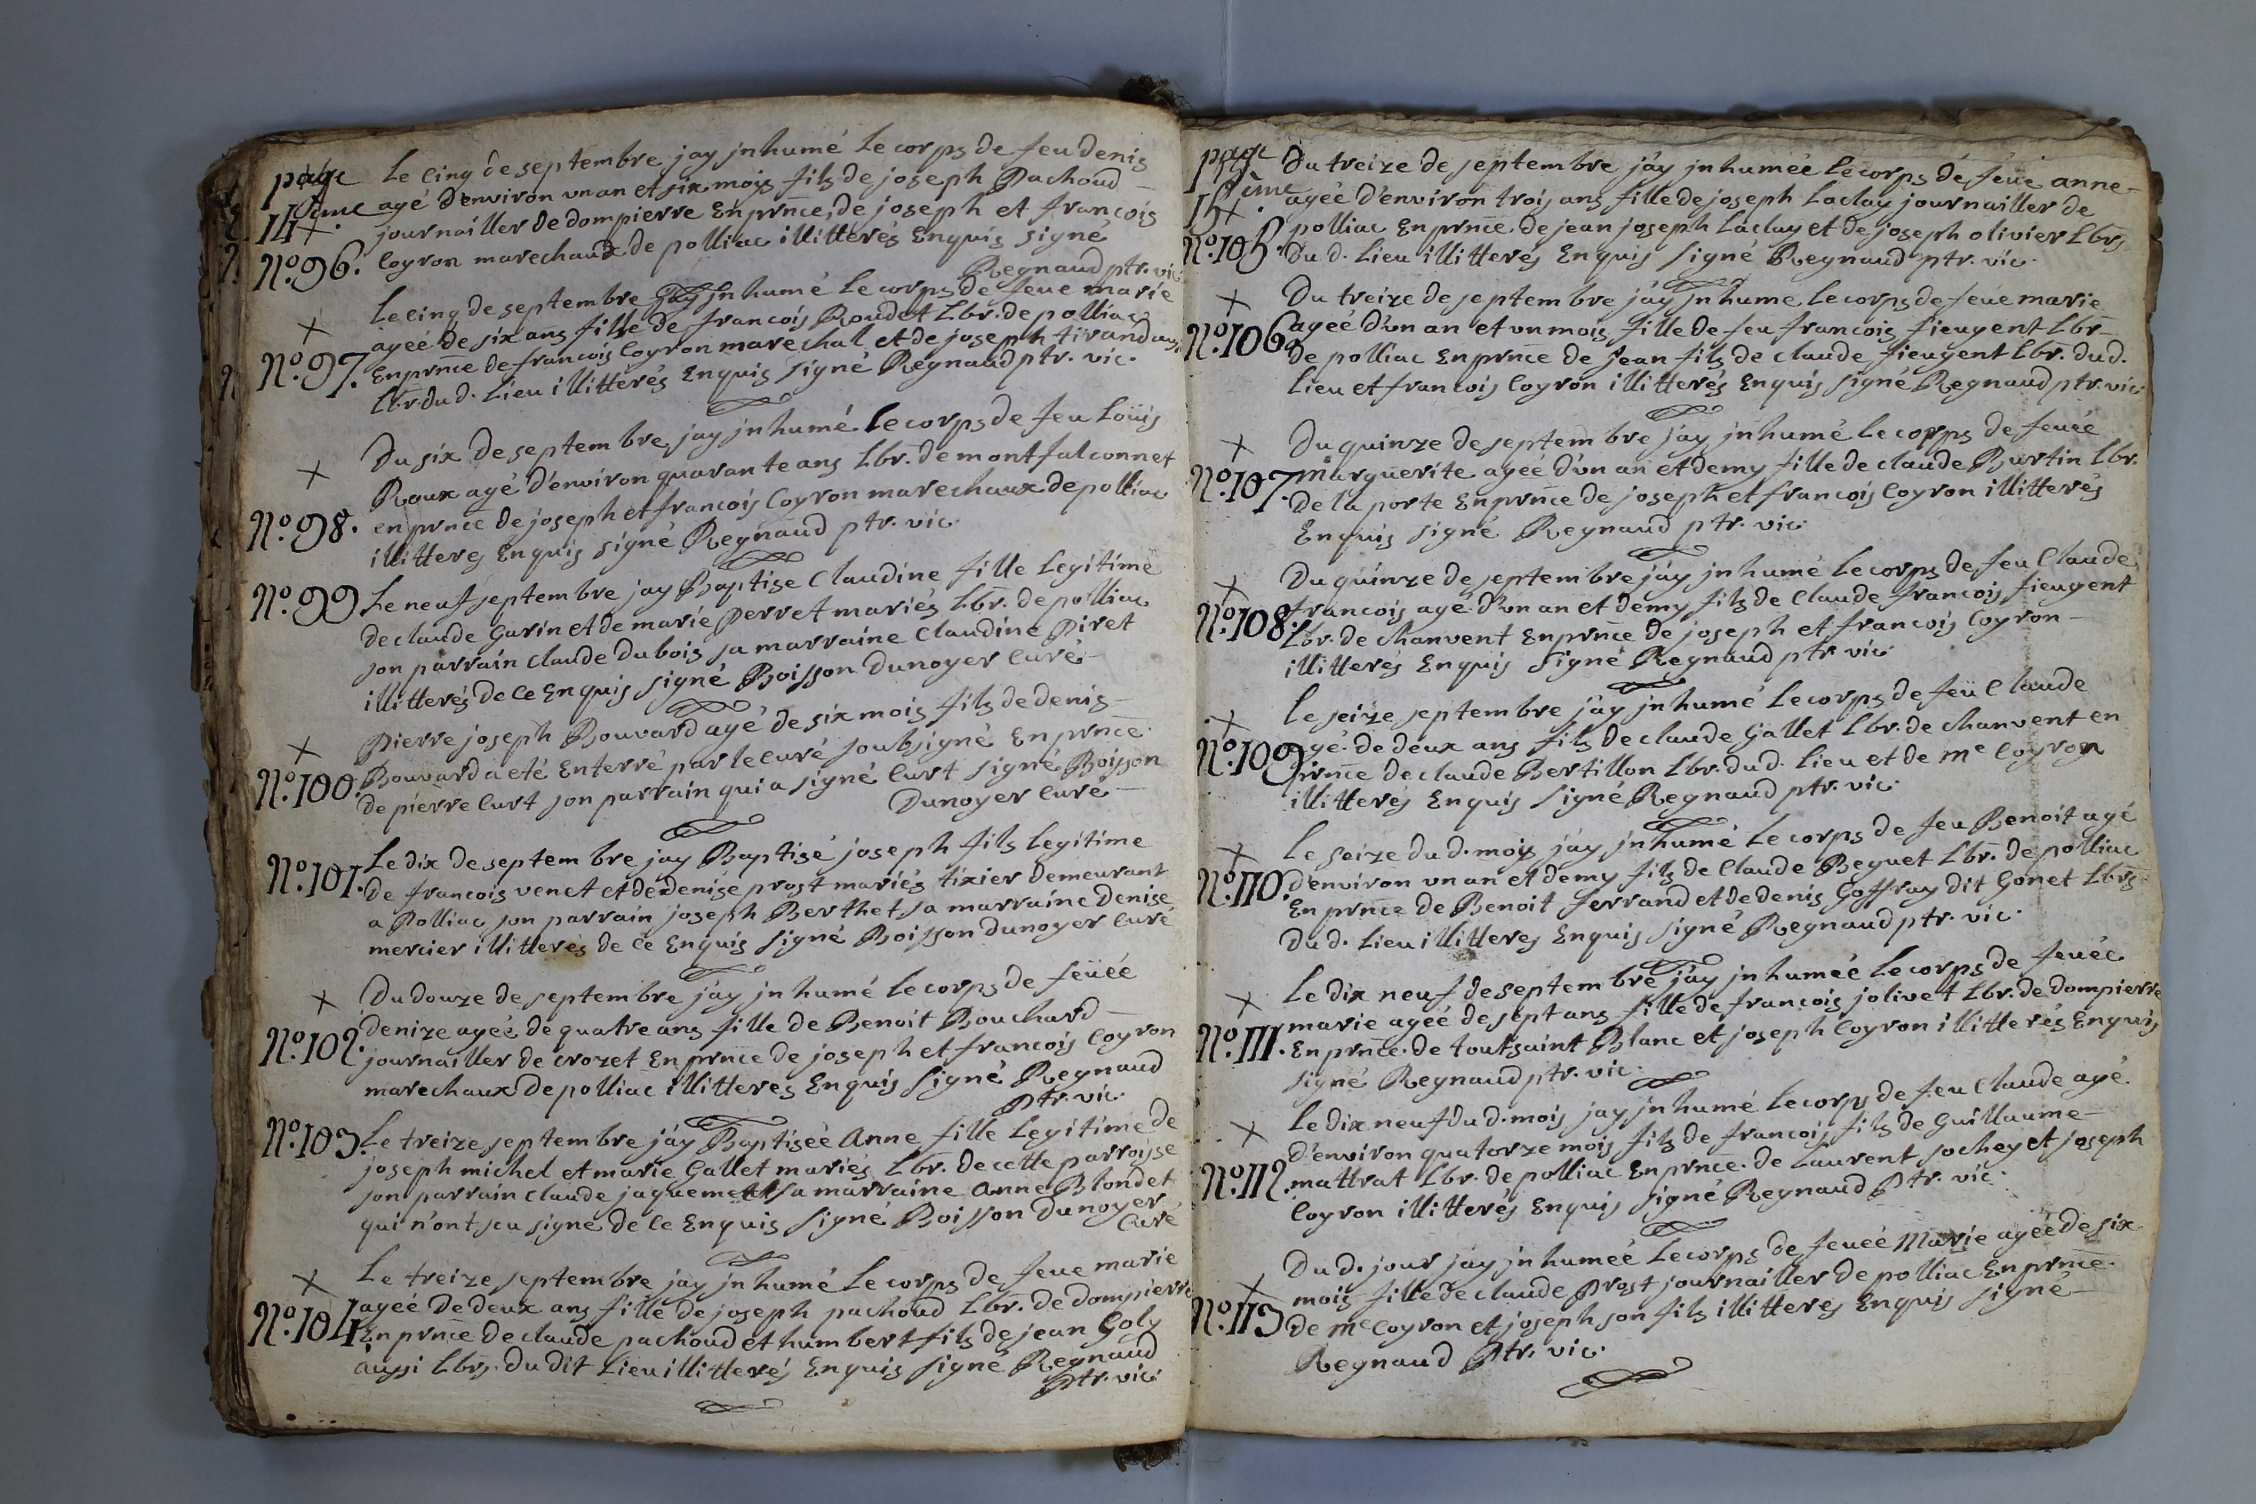 page
14ème
×
N.º 96.
Le cinq de septembre jay jnhumé Le corps de feu denis
agé denviron vn an et six mois fils de joseph Pachoud
journailler de dompierre En prñce, de joseph et francois
Coyron marechaux de polliac illitterés Enquis signé
Regnaud ptr. vic.
×
N.º 97.
Le cinq de septembre jay jnhumé Le corps de feue marie
ageé de six ans fille de francois Roudet Lbr. de polliac
Enprñce de francois Coyron marechal et de joseph tirand aussi
Lbr. du d. Lieu illitterés Enquis signé Regnaud ptr. vic.
×
N.º 98.
Du six de septembre jay jnhumé Le corps de feu Loüis
Roux agé d'environ quarante ans Lbr. de montfalconnet
en prnce de joseph et francois Coyron marechaux de polliac
illitteres Enquis signé Regnaud ptr. vic.
N.º 99
Le neuf septembre jay Baptise Claudine fille Legitime
de claude Garin et de marie perret mariés Lbr. de polliac
son parrain claude dubois sa marraine Claudine Piret
illitterés de ce Enquis signé Boisson Dunoyer Curé
×
N.º 100.
Pierre joseph Bouvard agé de six mois fils de denis
Bouvard a eté Enterré par le curé soubsigné En prnce
de pierre Curt son parrain qui a signé Curt signé Boisson
Dunoyer Curé
N.º 101.
Le dix de septembre jay Baptisé joseph fils Legitime
de francois venet et de denise prost mariés tixier demeurant
a Polliac son parrain joseph Berthet sa marraine Denise
mercier illitterés de ce Enquis signé Boisson Dunoyer Curé
×
N.º 102.
Du douze de septembre jay jnhumé Le corps de feüée
denize ageé de quatre ans fille de Benoit Bouchard
journailler de crozet En prnce de joseph et francois Coyron
marechaux de polliac illitteres Enquis signé Regnaud
Ptr. vic.
N.º 103.
Le treize septembre jay Baptiseé Anne fille Legitime de
joseph michel et marie Gallet mariés Lbr. de cette parroisse
son parrain claude jaquemet sa marraine Anne Blondet
qui n'ont sçu signé de ce Enquis signé Boisson Dunoyer
Curé
×
N.º 104
Le treize septembre jay jnhumé Le corps de feue marie
ageé de deux ans fille de joseph pachoud Lbr. de dompierre
En prnce de claude pachoud et humbert fils de jean Goly
aussi Lbrs. du dit Lieu illitterés Enquis signé Regnaud
Ptr. vic.
page
15ème
×
N.º 105.
Du treize de septembre jáy jnhumeé Le corps de feüe anne
ageé d'environ trois ans fille de joseph Laclay journailler de
polliac En prnce de jean joseph Laclay et de joseph olivier Lbrs
Du d. Lieu illitterés Enquis signé Regnaud ptr. vic.
×
N.º 106.
Du treize de septembre jáy jnhumé Le corps de feüe marie
ageé d'vn an et vn mois fille de feu francois fieugent Lbr.
de polliac En prnce de jean fils de claude fieugent Lbr. du d.
Lieu et francois Coyron illitterés Enquis signé Regnaud ptr. vic.
×
N.º 107.
Du quinze de septembre jáy jnhumé Le corps de feueé
marguerite ageé d'vn an et demy fille de claude Burtin Lbr.
De la porte En prnce de joseph et francois Coyron illitterés
Enquis signé Regnaud ptr. vic.
×
N.º 108.
Du quinze de septembre jáy jnhumé Le corps de feu Claude
francois agé d'vn an et demy fils de Claude francois fieugent
Lbr. de chanvent En prnce de joseph et francois Coyron
illitterés Enquis signé Regnaud ptr. vic.
×
N.º 109
Le seize septembre jáy jnhumé Le corps de feü Claude
agé de deux ans fils de claude Gallet Lbr. de chanvent en
prnce de claude Bertillon Lbr. du d. Lieu et de me Coyron
illitterés Enquis signé Regnaud ptr. vic.
×
N.º 110.
Le Seize du d. mois jáy jnhumé Le corps de feu Benoit agé
d'environ vn an et demy fils de Claude Beguet Lbr. de polliac
En prnce de Benoit ferrand et de denis Goffray dit Gonet Lbrs
Du d. Lieu illitteres Enquis signé Regnaud ptr. vic.
×
N.º 111.
Le dix neuf de septembre jáy jnhumeé Le corps de feueé
marie ageé de sept ans fille de francois jolivet Lbr. de dompierre
En prnce. de toutsaint Blanc et joseph Coyron illitterés Enquis
signé Regnaud ptr. vic.
×
N.º 112.
Le dix neuf du d. mois jay jnhumé Le corps de feu Claude agé
d'environ quatorze mois fils de francois fils de Guillaume
mattrat Lbr. de polliac En prnce. de Laurent sochey et joseph
Coyron illitterés Enquis signé Regnaud Ptr. vic.
×
N.º 113
Du d. jour jay jnhumeé Le corps de feueé Marie ageé de six
mois fille de claude Prost journailler de polliac En prnce.
de me Coyron et joseph son fils illitteres Enquis signé
Regnaud Ptr. vic.